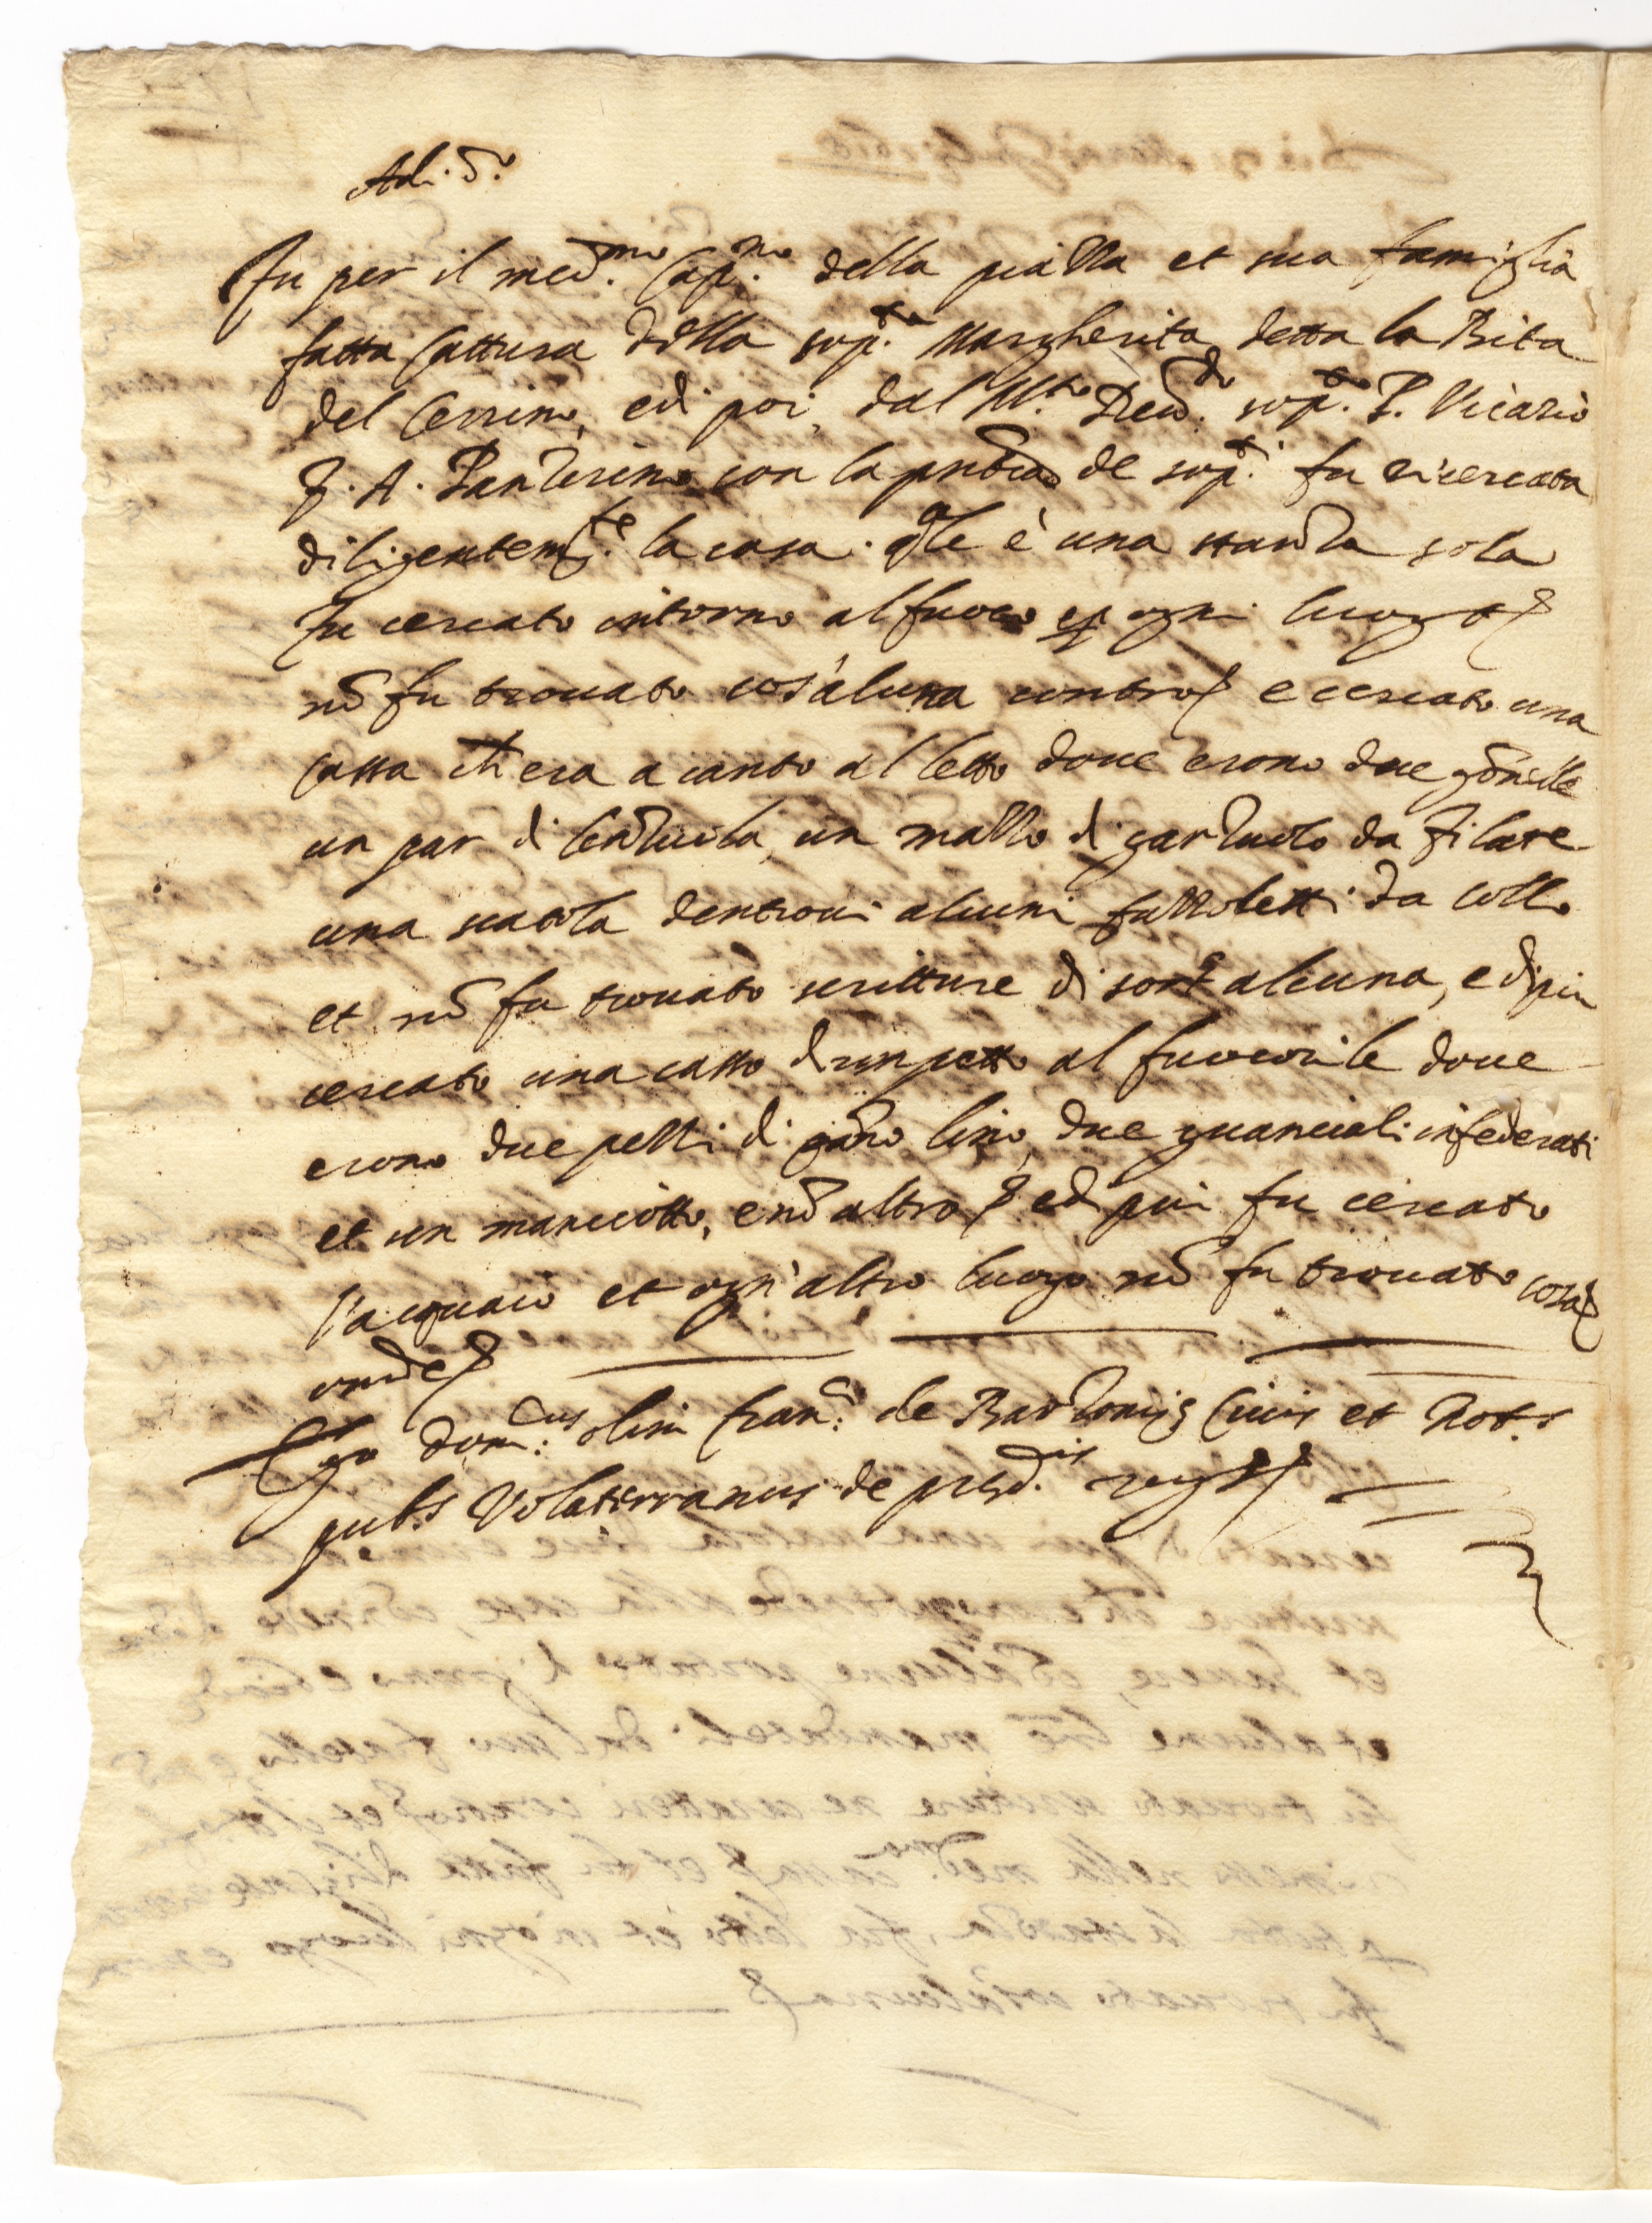 Adi. d.o
Fu per il med.mo Cap.no della piazza et sua famiglia
fatta Cattura della sop.ta Margherita detta la Rita
del Cerrino, e di poi, dal M.to Reu.do sop.to P. Vicario
de sop.ti fu ricercata
diligentem.te la casa. qle è una stanza sola
fu cercato intorno al fuoco et ogni luogo
nō fu trouato cos'alcuna contro e cercato una
cassa ch era a canto al letto doue erono due gōnelle
un par di lenzuola, un mazzo di garzuolo da filare
una scatola dentroui alcuni fazzoletti da collo
et nō fu trouato scritture di sorte alcuna, e di piu
cercato una cassa dirimpetto al fuocorile doue
erono due pezzi di lino, due guanciali infederati
et un manciotto, e nō altro e di piu fu cercato
l'acquaio et ogn'altro luogo nō fu trouato cosa
onde
Ego Dom:cus olim Fran:ci de Bartonijs Ciuis et Not.s
pub.s Volaterranus de pred.is rog.s